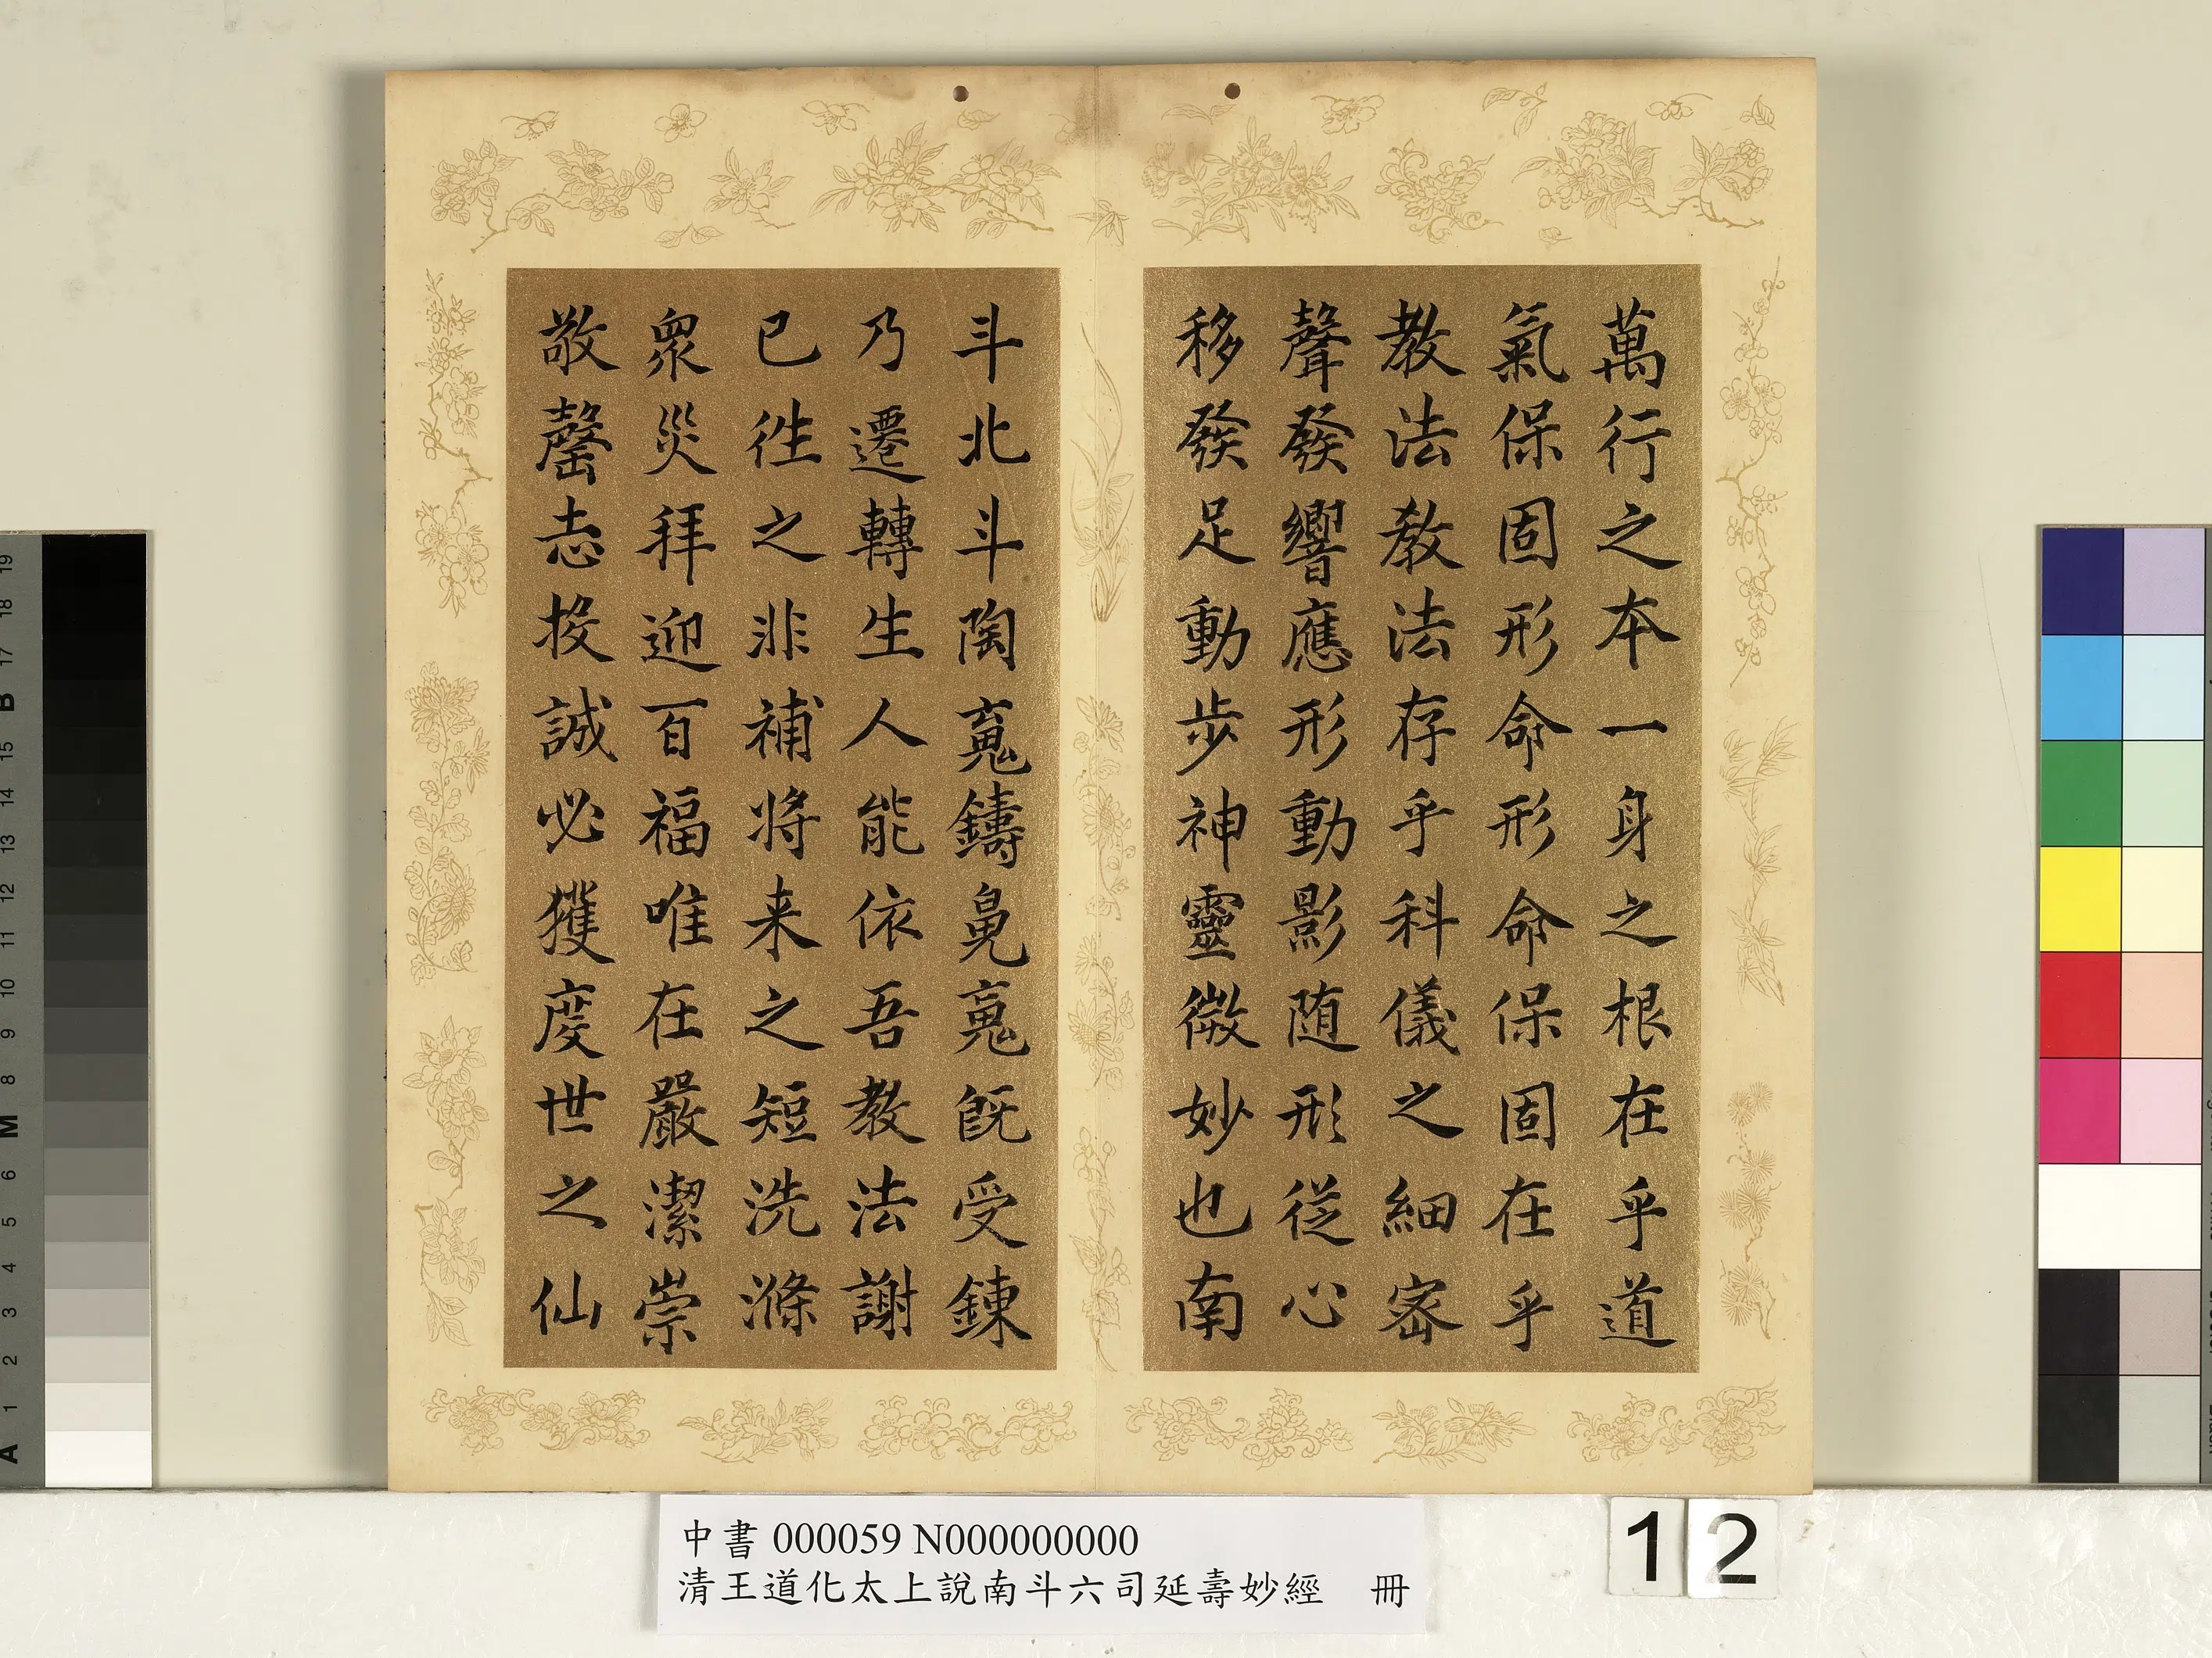 萬行之本一身之根在乎道
氣保固形命形命保固在乎
教法教法存乎科儀之細密
聲發響應形動影随形從心
移發足動步神靈微妙也南
斗北斗陶䰟鑄鬼䰟既受鍊
乃遷轉生人能依吾教法謝
已徃之非補将来之短洗滌
衆災拜迎百福唯在嚴潔崇
敬罄志投誠必獲度世之仙
中書 000059 N000000000
清王道化太上說南斗六司延壽妙經 冊
12
A 1 2 3 4 5 6 M 8 9 10 11 12 13 14 15 B 17 18 19